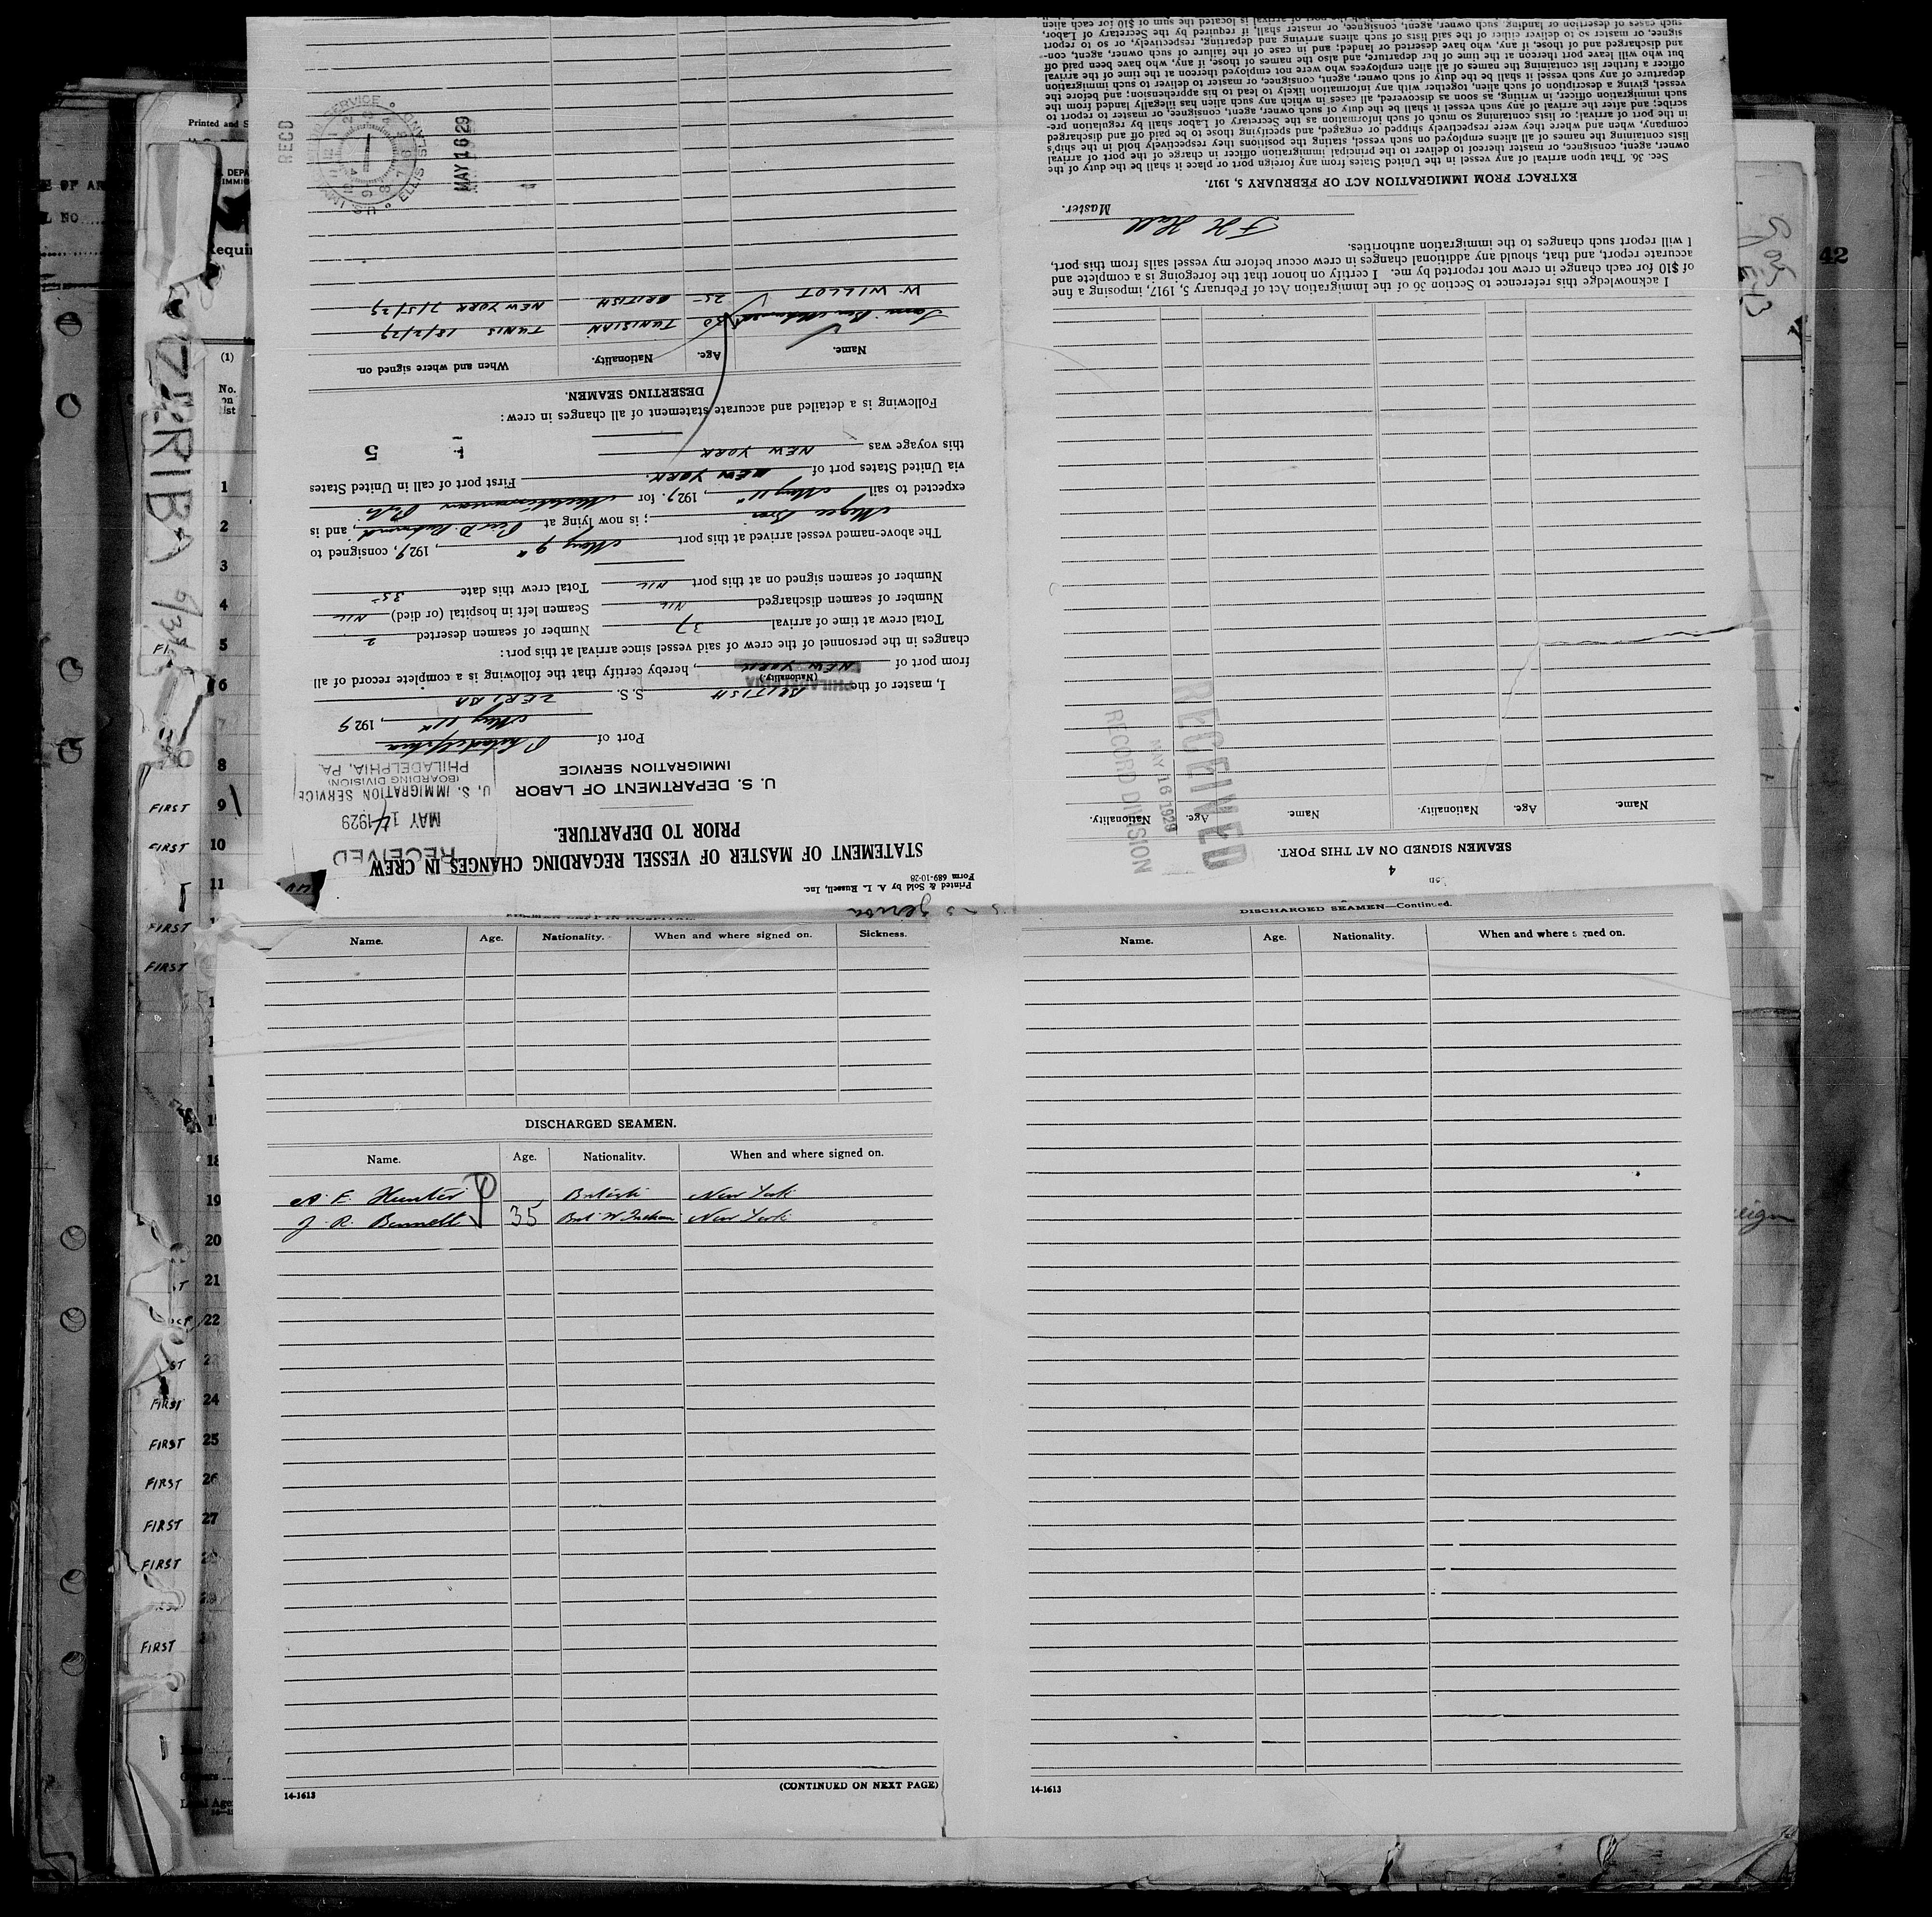 Printed & Sold by A. L. Russell, Inc.
Form 689-10-28
STATEMENT OF MASTER OF VESSEL REGARDING CHANGES IN CREW
PRIOR TO DEPARTURE.
RECEIVED
MAY 14 1929
U. S. IMMIGRATION SERVICE
(BOARDING DIVISION)
PHILADELPHIA, PA.
U. S. DEPARTMENT OF LABOR
IMMIGRATION SERVICE
Port of Philadelphia
May 11th, 1929
I, master of the BRITISH S.S. ZERIBA
(Nationality.)
PHILADELPHIA
from port of NEW YORK, hereby certify that the following is a complete record of all
changes in the personnel of the crew of said vessel since arrival at this port:
Total crew at time of arrival 37 Number of seamen deserted 2
Number of seamen discharged NIL Seamen left in hospital (or died) NIL
Number of seamen signed on at this port NIL Total crew this date 35
The above-named vessel arrived at this port May 9th, 1929, consigned to
; is now lying at Pier D. , and is
expected to sail May 11th, 1929. for Mediterranean Ports
via United States port of NEW YORK. First port of call in United States
this voyage was NEW YORK
5
Following is a detailed and accurate statement of all changes in crew:
DESERTING SEAMEN.
Name. Age. Nationality. When and where signed on.
Ben Mohamed 30 TUNISIAN TUNIS 18/2/29
W. WILLOT 25 BRITISH NEW YORK 7/5/29
RECD
U.S. IMMIGRATION SERVICE ELLIS ISLAND
MAY 16 29
4
SEAMEN SIGNED ON AT THIS PORT.
Name. Age. Nationality. Name. Age. Nationality.
RECEIVED
MAY 16 1929
RECORD DIVISION
I acknowledge this reference to Section 36 of the Immigration Act of February 5, 1917, imposing a fine
of $10 for each change in crew not reported by me. I certify on honor that the foregoing is a complete and
accurate report, and that, should any additional changes in crew occur before my vessel sails from this port,
I will report such changes to the immigration authorities.
F H Hall
Master.
EXTRACT FROM IMMIGRATION ACT OF FEBRUARY 5, 1917.
Sec. 36. That upon arrival of any vessel in the United States from any foreign port or place it shall be the duty of the
owner, agent, consignee, or master thereof to deliver to the principal immigration officer in charge of the port of arrival
lists containing the names of all aliens employed on such vessel, stating the positions they respectively hold in the ship's
company, when and where they were respectively shipped or engaged, and specifying those to be paid off and discharged
in the port of arrival; or lists containing so much of such information as the Secretary of Labor shall by regulation pre-
scribe; and after the arrival of any such vessel it shall be the duty of such owner, agent, consignee, or master to report to
such immigration officer, in writing, as soon as discovered, all cases in which any such alien has illegally landed from the
vessel, giving a description of such alien, together with any information likely to lead to his apprehension; and before the
departure of any such vessel it shall be the duty of such owner, agent, consignee, or master to deliver to such immigration
officer a further list containing the names of all alien employees who were not employed thereon at the time of the arrival
but who will leave port thereon at the time of her departure, and also the names of those, if any, who have been paid off
and discharged and of those, if any, who have deserted or landed; and in case of the failure of such owner, agent, con-
signee, or master so to deliver either of the said lists of such aliens arriving and departing, respectively, or so to report
such cases of desertion or landing, such owner, agent, consignee, or master shall, if required by the Secretary of Labor,
Name. Age. Nationality. When and where signed on. Sickness.
DISCHARGED SEAMEN.
Name. Age. Nationality. When and where signed on.
A. F. Hunter British New York
J. R. Bennett 35 Brit W Indian New York
14-1613
(CONTINUED ON NEXT PAGE)
DISCHARGED SEAMEN—Continued.
Name. Age. Nationality. When and where signed on.
14-1613
Printed and
(1)
No.
on
list
ZERIBA
42
1
2
3
4
5
6
7
8
FIRST 9
FIRST 10
11
FIRST
FIRST
18
19
20
21
22
FIRST 24
FIRST 25
FIRST 26
FIRST 27
FIRST
FIRST